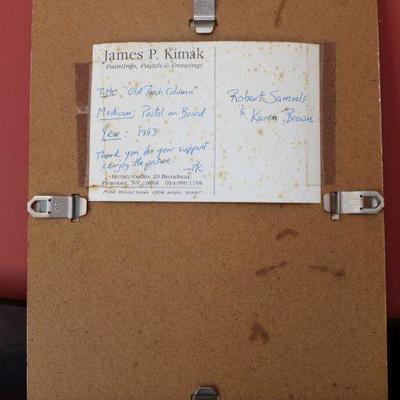 James P. Kimak
Paintings, Pastels & Drawings
Title: "Old Porch Column"
Medium: Pastel on Board
Year: 1993
Thank you for your support
& enjoy the picture
—JK
Home/studio: 20 Broadway,
Piermont, NY 10968 914-359-1158
Robert Samuels
& Karen Brown